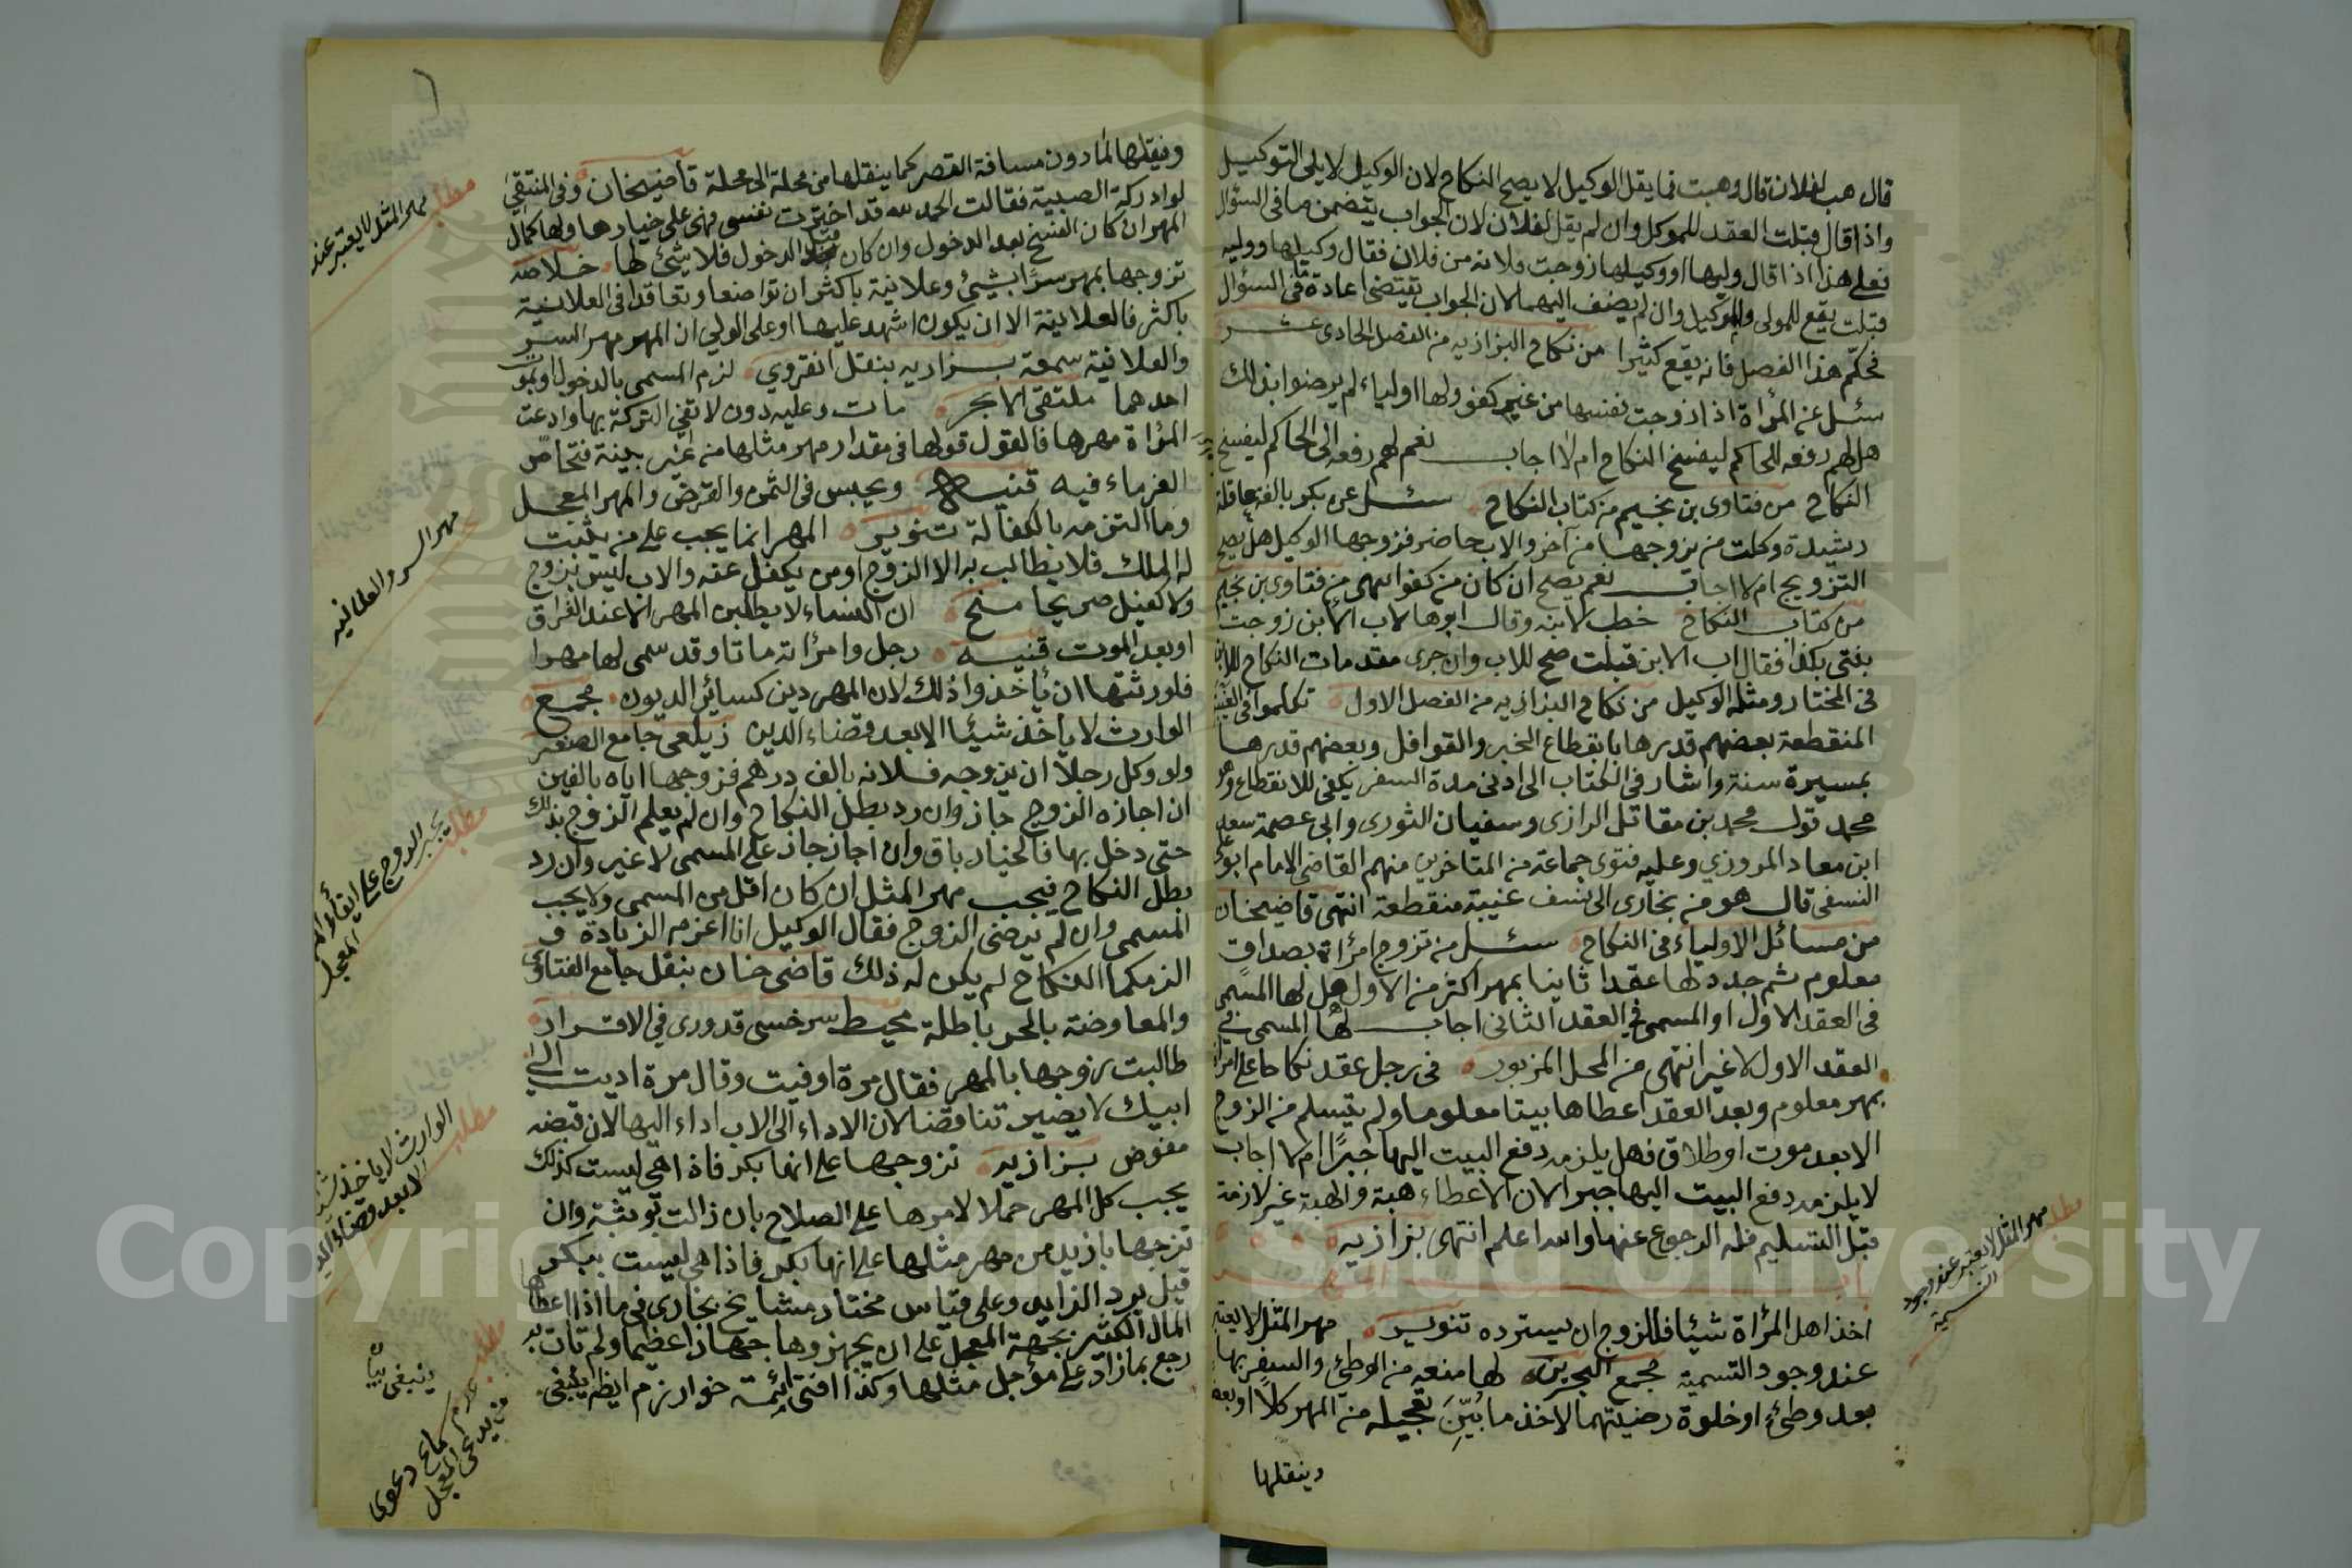 قال هب لفلان قال وهبت فما يقل الوكيل لا يصح النكاح لان الوكيل لا يلى التوكيل
واذا قال قبلت العقد للموكل وان لم يقل لفلان لان الجواب يتضمن ما فى السؤال
فعلى هذا اذا قال وليها او وكيلها زوجت فلانه من فلان فقال وكيلها ووليه
قبلت يقع للمولى والموكيل وان لم يضف اليهما لان الجواب يقتضى اعادة ما فى السؤال
فحكم هذا الفصل فانه يقع كثيرا من نكاح البزازيه من الفصل الحادى عشر
سئل عن المرأة اذا زوجت نفسها من غير كفو ولها اولياء لم يرضوا بذالك
هل لهم رفعه للحاكم ليفسخ النكاح ام لا اجاب نعم لهم رفعه الى الحاكم ليفسخ
النكاح من فتاوى بن نجيم من كتاب النكاح سئل عن بكر بالغة عاقلة
رشيدة وكلت من يزوجها من آخر والاب حاضر فزوجها الوكيل هل يصح
التزويج ام لا اجاب نعم يصح ان كان من كفو انتهى من فتاوى بن نجيم
من كتاب النكاح خطب لابنه وقال ابوها لاب الابن زوجت
بنتى بكذا فقال اب الابن قبلت صح للاب وان جرى مقدمات النكاح للابن
فى المختار ومثله الوكيل من نكاح البزازيه من الفصل الاول تكلموا فى الغيبة
المنقطعة بعضهم قدرها بانقطاع الخبر والقوافل وبعضهم قدرها
بمسيرة سنة واشار فى الكتاب الى ادنى مدة السفر يكفى للانقطاع وهو
محمد قول محمد بن مقاتل الرازى وسفيان الثورى وابى عصمة سعد
ابن معاد المروزي وعليه فتوى جماعة من المتاخرين منهم القاضى الامام ابو على
النسفى قال هو من بخارى الى نسف غيبة منقطعة انتهى قاضيخان
من مسائل الاولياء فى النكاح سئل من تزوج امرأة بصداق
معلوم ثم جدد لها عقدا ثانيا بمهر اكثر من الاول هل لها المسمى
فى العقد الاول او المسمى فى العقد الثانى اجاب لها المسمى فى
العقد الاول لا غير انتهى من المحل المزبور فى رجل عقد نكاحا على امرأة
بمهر معلوم وبعد العقد اعطاها بيتا معلوما ولم يتسلم من الزوج
الا بعد موت او طلاق فهل يلزمه دفع البيت اليها جبرًا ام لا اجاب
لا يلزمه دفع البيت اليها جبرا لان الاعطاء هبة والهبة غير لازمة
قبل التسليم فله الرجوع عنها والله اعلم انتهى بزازيه
المهر
اخذ اهل المرأة شيئا فللزوج ان يسترده تنوير مهر المثل لا يعتبر
عند وجود التسمية مجمع البحرين لها منعه من الوطئ والسفر بها
بعد وطئ او خلوة رضيتهما لاخذ ما بُيِّنَ تعجيله من المهر كلاً او بعضا
وينقلها
مطلب
مهر المثل لا يعتبر عند وجود
التسمية
وينقلها لما دون مسافة القصر كما ينقلها من محلة الى محلة قاضيخان وفى المنتقى
لو ادركة الصبية فقالت الحمد لله قد اخترت نفسى فهى على خيارها ولها كمال
المهر ان كان الفسخ بعد الدخول وان كان قبل الدخول فلا شئ لها خلاصه
تزوجها بمهر سرًا بشيئ وعلانية باكثر ان تواضعا وتعاقدا فى العلانية
باكثر فالعلانية الا ان يكون اشهد عليها او على الولي ان المهر مهر السر
والعلانية سمعة بزازيه بنقل انقروي لزم المسمى بالدخول او بموت
احدهما ملتقى الابحر مات وعليه ديون لا تفي التركة بها وادعت
المرأة مهرها فالقول قولها فى مقدار مهر مثلها من غير بينة فتحاصّ
الغرماء فيه قنيه ويحبس فى الثمن والقرض والمهر المعجل
وما التزمه بالكفالة تنوير المهر انما يجب على من يثبت
له الملك فلا يطالب به الا الزوج او من يكفل عنه والاب ليس بزوج
ولا كفيل صريحا منح ان النساء لا يطلبن المهر الا عند الفراق
او بعد الموت قنيه رجل وامرأته ماتا وقد سمى لها مهرا
فلورثتها ان يأخذوا ذلك لان المهر دين كسائر الديون مجمع
الوارث لا يأخذ شيئا الا بعد قضاء الدين زيلعى جامع الصغير
ولو وكل رجلا ان يزوجه فلانه بالف درهم فزوجها اياه بالفين
ان اجازه الزوج جاز وان رد بطل النكاح وان لم يعلم الزوج بذلك
حتى دخل بها فالخيار باق وان اجاز جاز على المسمى لا غير وان رد
بطل النكاح فيجب مهر المثل ان كان اقل من المسمى ولا يجب
المسمى وان لم يرضى الزوج فقال الوكيل انا اغرم الزيادة و
الزمكما النكاح لم يكن له ذلك قاضى خان بنقل جامع الفتاوى
والمعاوضة بالحر باطلة محيط سرخسى قدورى في الاقرار
طالبت زوجها بالمهر فقال مرة اوفيت وقال مرة اديت الى
ابيك لا يصير تناقضا لان الاداء الى الاب اداء اليها لان قبضه
مفوض بزازيه تزوجها على انها بكر فاذا هى ليست كذلك
يجب كل المهر حملا لامرها على الصلاح بان زالت بوثبة وان
تزوجها بازيد من مهر مثلها على انها بكر فاذا هي ليست ببكر
قيل يرد الزايد وعلى قياس مختار مشايخ بخارى فى ما اذا اعطاها
المال الكثير بجهة المعجل على ان يجهزوها جهازا عظيما ولم تات به
رجع بما زاد على مؤجل مثلها وكذا افتى ائمة خوارزم ايضا ينبغى
مطلب
مهر المثل لا يعتبر عند
مهر السر والعلانيه
مطلب
يجبر الزوج على ايفاء المهر
المعجل
مطلب
الوارث لا ياخذ شيئا
الا بعد قضاء الدين
ينبغى
مطلب
عدم سماع دعوى
المعجل